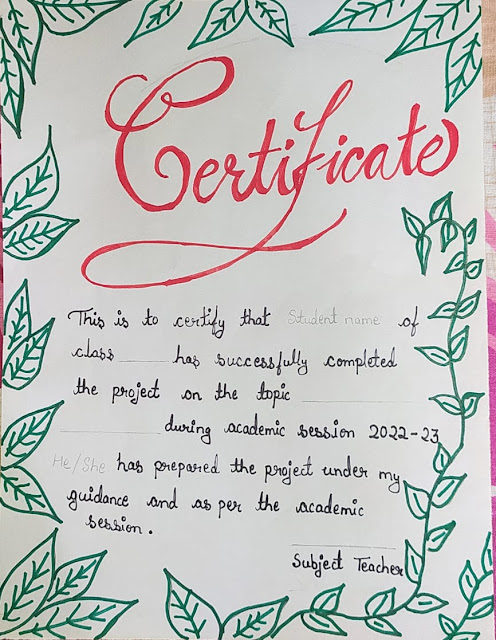 Certificate
This is to certify that Student name of
class ______ has successfully completed
the project on the topic ____________
____________ during academic session 2022-23
He/She has prepared the project under my
guidance and as per the academic
session.
____________
Subject Teacher